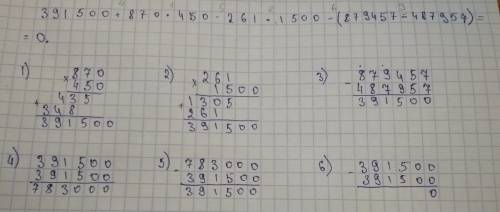 391500 + 870 · 450 - 261 · 1500 - (879457 - 487957) =
= 0.
1) × 870
450
+ 435
348
391500
2) × 261
1500
+ 1305
261
391500
3) - 879457
487957
391500
4) 391500
391500
783000
5) - 783000
391500
391500
6) - 391500
391500
0